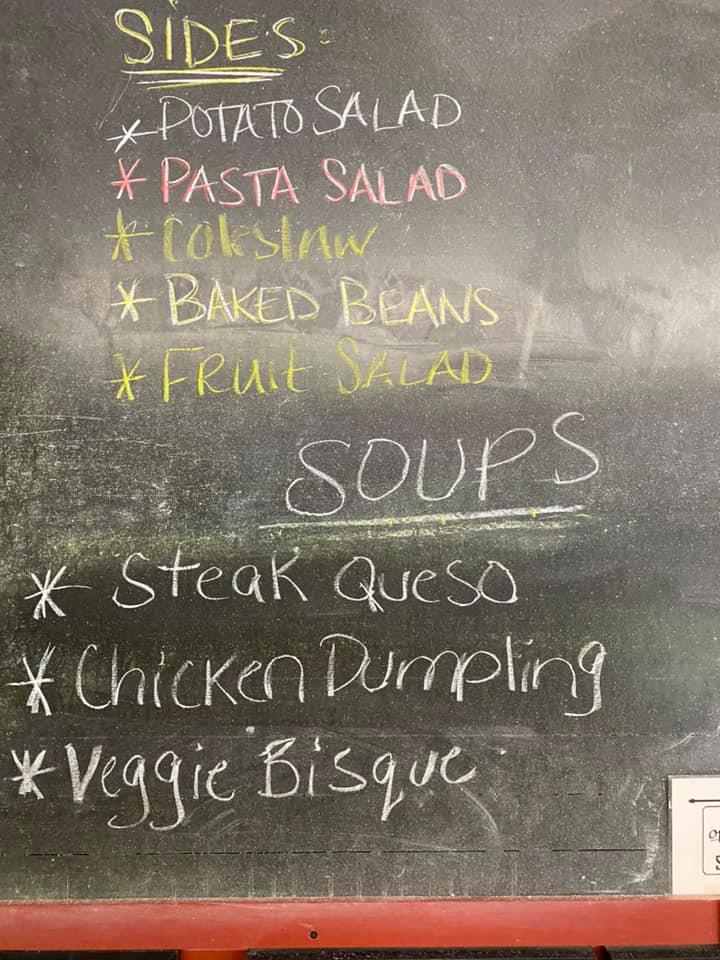 SIDES:
* POTATO SALAD
* PASTA SALAD
* Coleslaw
* BAKED BEANS
* FRUIt SALAD
SOUPS
* Steak Queso
* Chicken Dumpling
* Veggie Bisque